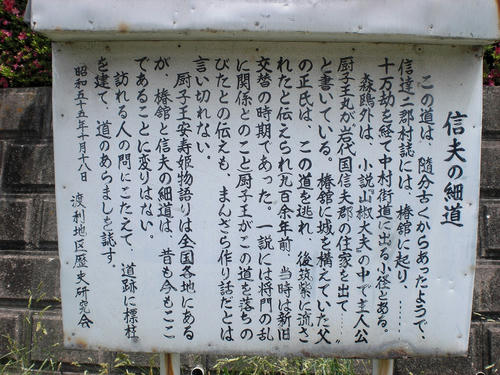 信夫の細道
この道は、随分古くからあったようで、
信達二郡村誌には、椿舘に起り、……
十万劫を経て中村街道に出る小径とある。
森鴎外は、小説山椒大夫の中で主人公
厨子王丸が岩代国信夫郡の住家を出て……〃
と書いている。椿舘に城を構えていた父
の正氏は、この道を逃れ、後筑紫に流さ
れたと伝えられ九百余年前、当時は新旧
交替の時期であった。一説には将門の乱
に関係とのこと厨子王がこの道を落ちの
びたとの伝えも、まんざら作り話だとは
言い切れない。
厨子王安寿姫物語りは全国各地にある
が、椿舘と信夫の細道は、昔も今もここ
であることに変りはない。
訪れる人の問にこたえて、道跡に標柱
を建て、道のあらましを誌す。
昭和五十五年十月十八日
渡利地区歴史研究会